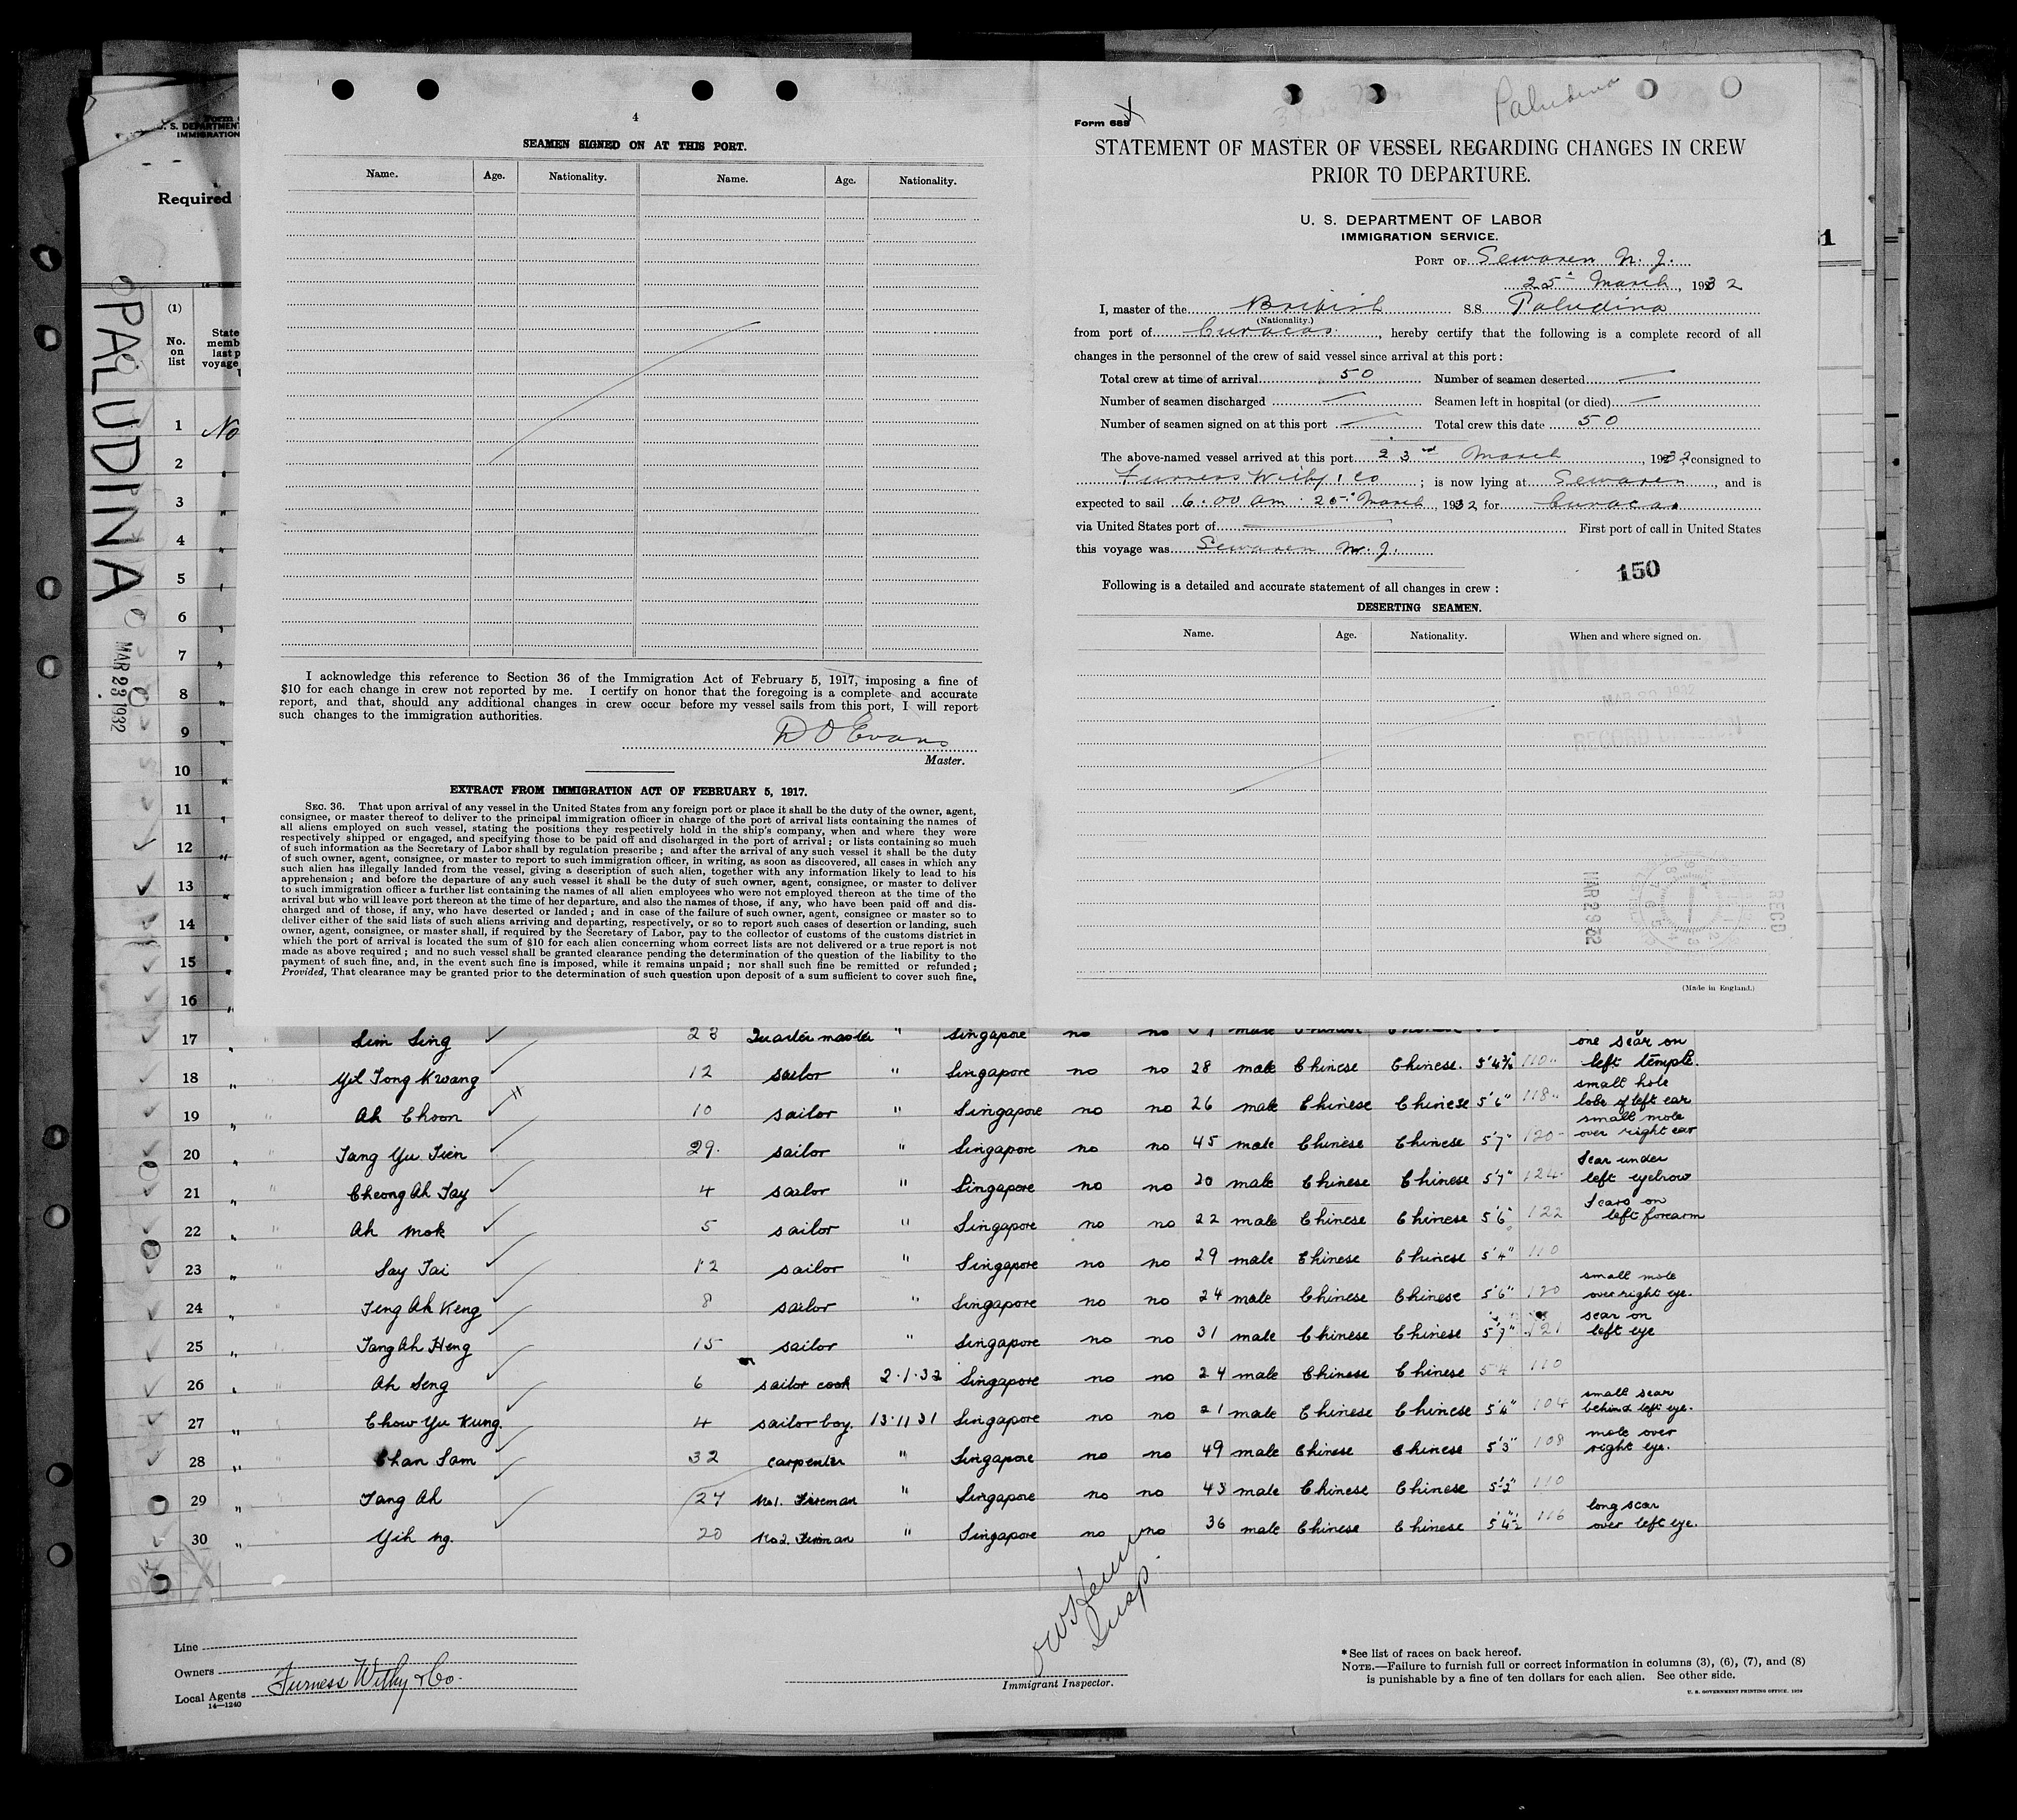 4
SEAMEN SIGNED ON AT THIS PORT.
Name. Age. Nationality. Name. Age. Nationality.
I acknowledge this reference to Section 36 of the Immigration Act of February 5, 1917, imposing a fine of
$10 for each change in crew not reported by me. I certify on honor that the foregoing is a complete and accurate
report, and that, should any additional changes in crew occur before my vessel sails from this port, I will report
such changes to the immigration authorities.
D O Evans
Master.
EXTRACT FROM IMMIGRATION ACT OF FEBRUARY 5, 1917.
SEC. 36. That upon arrival of any vessel in the United States from any foreign port or place it shall be the duty of the owner, agent,
consignee, or master thereof to deliver to the principal immigration officer in charge of the port of arrival lists containing the names of
all aliens employed on such vessel, stating the positions they respectively hold in the ship's company, when and where they were
respectively shipped or engaged, and specifying those to be paid off and discharged in the port of arrival; or lists containing so much
of such information as the Secretary of Labor shall by regulation prescribe; and after the arrival of any such vessel it shall be the duty
of such owner, agent, consignee, or master to report to such immigration officer, in writing, as soon as discovered, all cases in which any
such alien has illegally landed from the vessel, giving a description of such alien, together with any information likely to lead to his
apprehension; and before the departure of any such vessel it shall be the duty of such owner, agent, consignee, or master to deliver
to such immigration officer a further list containing the names of all alien employees who were not employed thereon at the time of the
arrival but who will leave port thereon at the time of her departure, and also the names of those, if any, who have been paid off and dis-
charged and of those, if any, who have deserted or landed; and in case of the failure of such owner, agent, consignee or master so to
deliver either of the said lists of such aliens arriving and departing, respectively, or so to report such cases of desertion or landing, such
owner, agent, consignee, or master shall, if required by the Secretary of Labor, pay to the collector of customs of the customs district in
which the port of arrival is located the sum of $10 for each alien concerning whom correct lists are not delivered or a true report is not
made as above required; and no such vessel shall be granted clearance pending the determination of the question of the liability to the
payment of such fine, and, in the event such fine is imposed, while it remains unpaid; nor shall such fine be remitted or refunded;
Provided, That clearance may be granted prior to the determination of such question upon deposit of a sum sufficient to cover such fine.
Paludina
Form 689
STATEMENT OF MASTER OF VESSEL REGARDING CHANGES IN CREW
PRIOR TO DEPARTURE.
U. S. DEPARTMENT OF LABOR
IMMIGRATION SERVICE.
PORT OF Sewaren N. J.
25th March, 1932
I, master of the British SS. Paludina
(Nationality.)
from port of Curacao, hereby certify that the following is a complete record of all
changes in the personnel of the crew of said vessel since arrival at this port:
Total crew at time of arrival 50 Number of seamen deserted —
Number of seamen discharged — Seamen left in hospital (or died) —
Number of seamen signed on at this port — Total crew this date 50
The above-named vessel arrived at this port 23rd March, 1932, consigned to
Furness Withy & Co; is now lying at Sewaren, and is
expected to sail 6.00 am 25th March, 1932 for Curacao
via United States port of — First port of call in United States
this voyage was Sewaren N. J.
150
Following is a detailed and accurate statement of all changes in crew:
DESERTING SEAMEN.
Name. Age. Nationality. When and where signed on.
MAR 29 32
REC'D
(Made in England.)
U. S. DEPARTMENT
IMMIGRATION
Required
PALUDINA
MAR 23 1932
(1)
No.
on
list
State
memb
last p
voyage
1 No
2 "
3 "
4 "
5 "
6 "
7 "
8 "
9 "
10 "
11 "
12 "
13 "
14 "
15 "
16 "
17 " Lim Sing 23 Quarter master " Singapore no no
one scar on
18 " Yit Tong Kwang 12 sailor " Singapore no no 28 male Chinese Chinese. 5'4¾" 110 left temple.
small hole
19 " Ah Choon 10 sailor " Singapore no no 26 male Chinese Chinese 5'6" 118 lobe of left ear
small mole
20 " Tang Yu Tien 29. sailor " Singapore no no 45 male Chinese Chinese 5'7" 120 over right ear
Scar under
21 " Cheong Ah Tay 4 sailor " Singapore no no 20 male Chinese Chinese 5'7" 124 left eyebrow
Scars on
22 " Ah Mok 5 sailor " Singapore no no 22 male Chinese Chinese 5'6" 122 left forearm
23 " Say Tai 12 sailor " Singapore no no 29 male Chinese Chinese 5'4" 110
small mole
24 " Teng Ah Keng 8 sailor " Singapore no no 24 male Chinese Chinese 5'6" 120 over right eye.
scar on
25 " Tang Ah Heng 15 sailor " Singapore no no 31 male Chinese Chinese 5'7" 121 left eye
26 " Ah Seng 6 sailor cook 2.1.32 Singapore no no 24 male Chinese Chinese 5'4 110
small scar
27 " Chow Yu Kung. 4 sailor boy. 13.11.31 Singapore no no 21 male Chinese Chinese 5'4" 104 behind left eye.
mole over
28 " Chan Sam 32 carpenter " Singapore no no 49 male Chinese Chinese 5'3" 108 right eye.
29 " Tang Ah 27 No1. Fireman " Singapore no no 43 male Chinese Chinese 5'3" 110
long scar
30 " Yih Ng. 20 No2. Fireman " Singapore no no 36 male Chinese Chinese 5'4½" 116 over left eye.
Line
Owners
Local Agents Furness Withy & Co.
14—1240
Insp.
Immigrant Inspector.
* See list of races on back hereof.
NOTE.—Failure to furnish full or correct information in columns (3), (6), (7), and (8)
is punishable by a fine of ten dollars for each alien. See other side.
U. S. GOVERNMENT PRINTING OFFICE: 1929